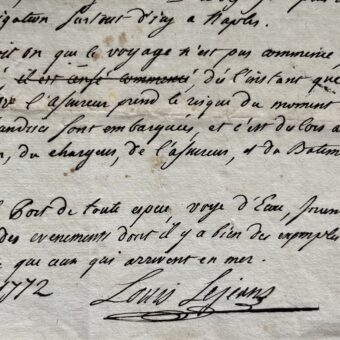 igation surtout d'icy a Naples.
on que le voyage n'est pas commencé,
il est censé commencé, dès l'instant que
l'assureur prend le risque du moment
sont embarquées, et c'est dès lors a
du chargeur, de l'assureur, et du Batim
Port de toute espece, voye d'Eau,
des evenements dont il y a bien des exemples
que ceux qui arrivent en mer.
1772
Louis Lejeans